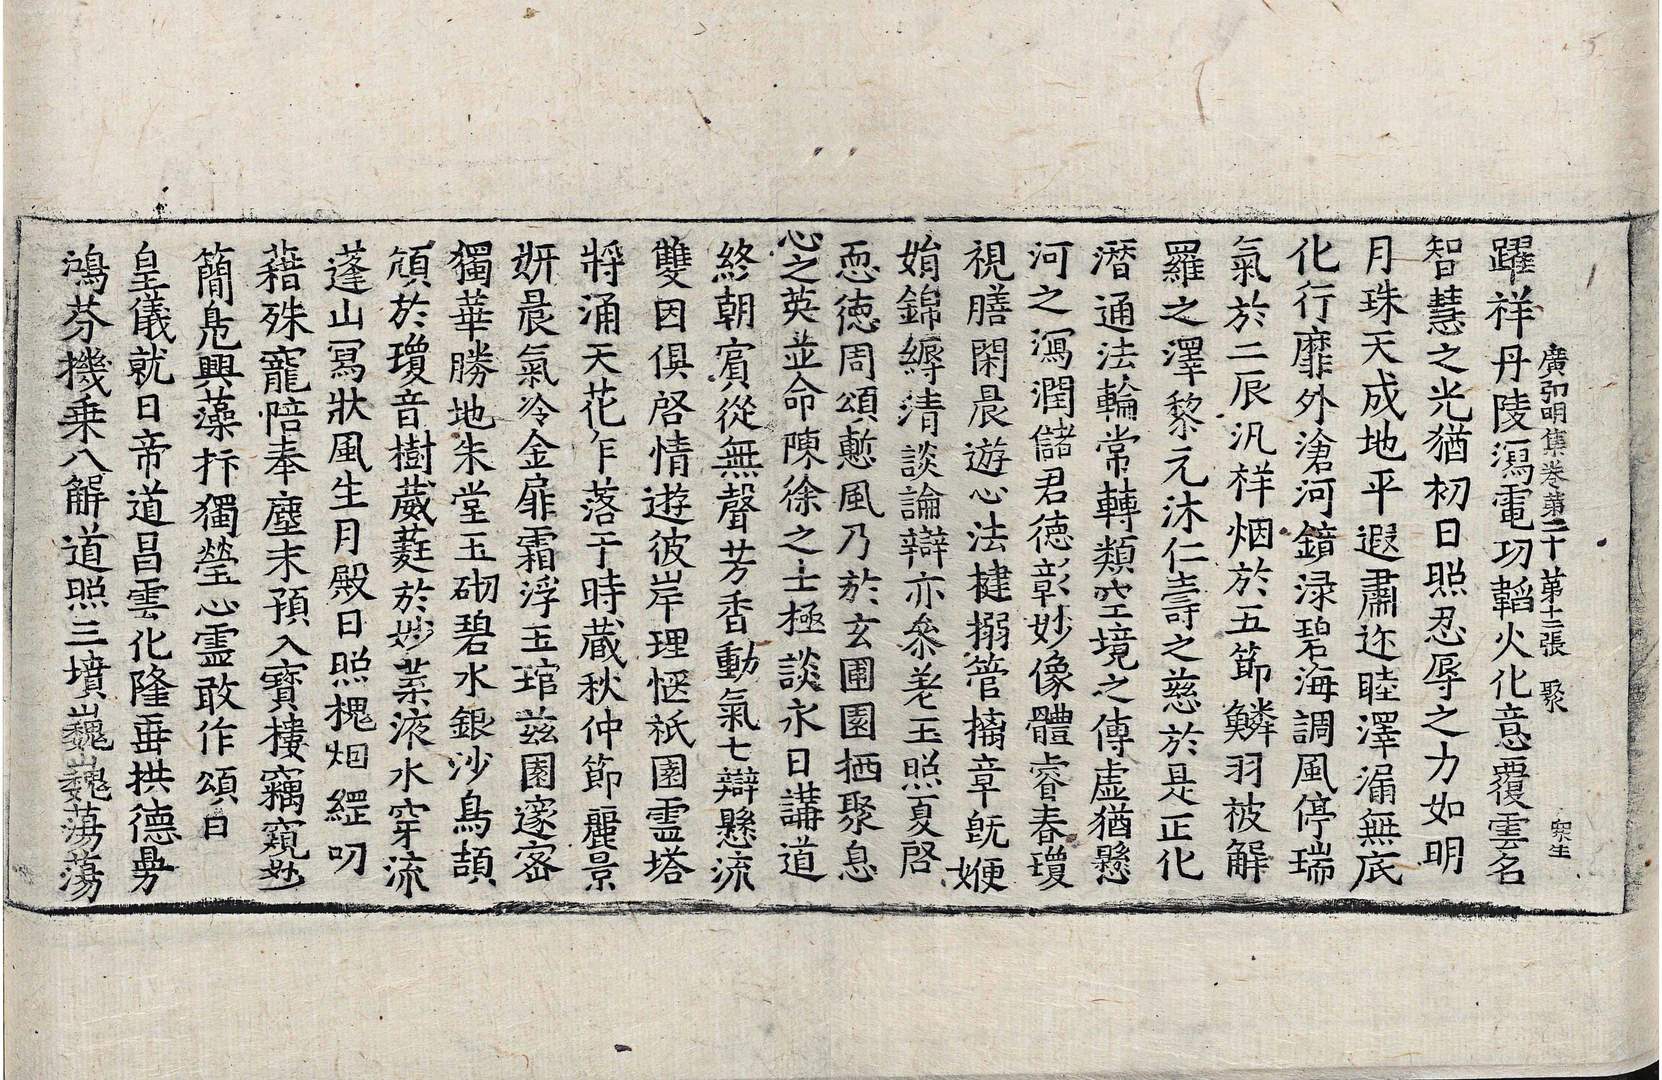 廣弘明集卷第二十 第十二張 聚
躍祥丹陵瀉電功韜火化意覆雲名
智慧之光猶初日照忍辱之力如明
月珠天成地平遐肅迩睦澤漏無底
化行靡外滄河鏡渌碧海調風停瑞
氣於二辰汎祥烟於五節鱗羽被解
羅之澤黎元沐仁壽之慈於是正化
潛通法輪常轉類空境之傳虛猶懸
河之瀉潤儲君德彰妙像體睿春瓊
視膳閑晨遊心法揵搦管摛章既婹
娟錦縟清談論辯亦參差玉照夏啓
恧德周頌慙風乃於玄圃園栖聚息
心之英並命陳徐之士極談永日講道
終朝賓從無聲芳香動氣七辯懸流
雙因俱啓情遊彼岸理愜祇園靈塔
將涌天花乍落于時藏秋仲節麗景
妍晨氣冷金扉霜浮玉琯茲園邃密
獨華勝地朱堂玉砌碧水銀沙鳥頡
頏於瓊音樹葳蕤於妙葉液水穿流
蓬山寫狀風生月殿日照槐烟綱叨
藉殊寵陪奉塵末預入寶樓竊窺妙
簡鳧興藻抃獨瑩心靈敢作頌曰
皇儀就日帝道昌雲化隆垂拱德昴
鴻芬機乘八解道照三墳巍巍蕩蕩